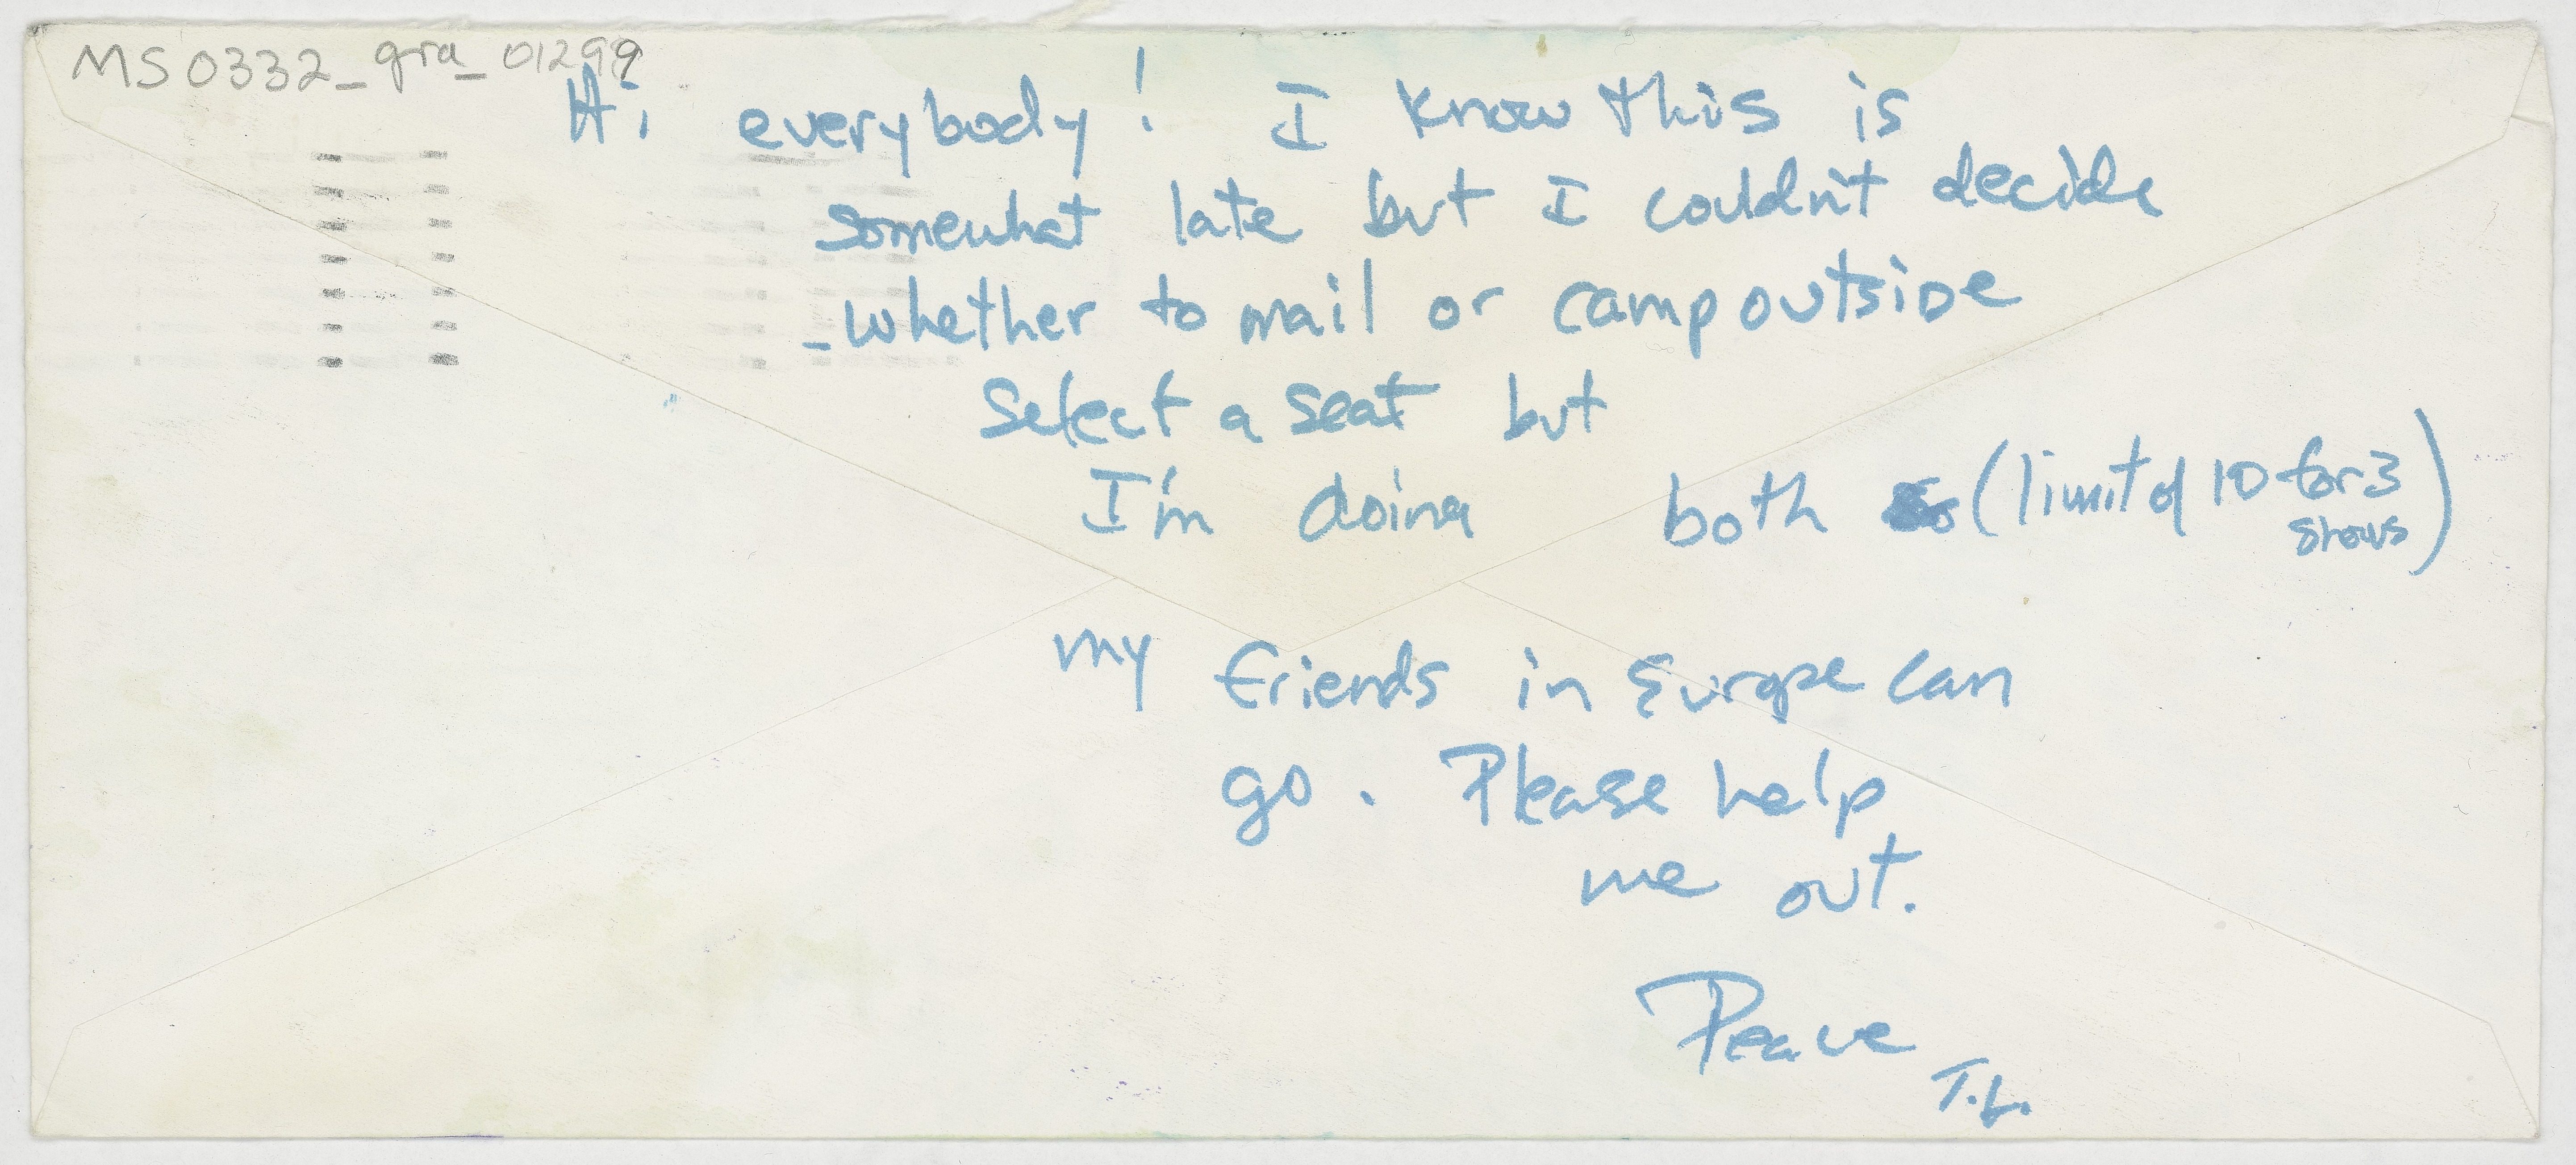 MS0332_gra_01299
Hi everybody! I know this is
somewhat late but I couldn't decide
-whether to mail or camp outside
Select a seat but
I'm doing both so (limit of 10 for 3
shows)
my friends in Europe can
go. Please help
me out.
Peace
T.L.